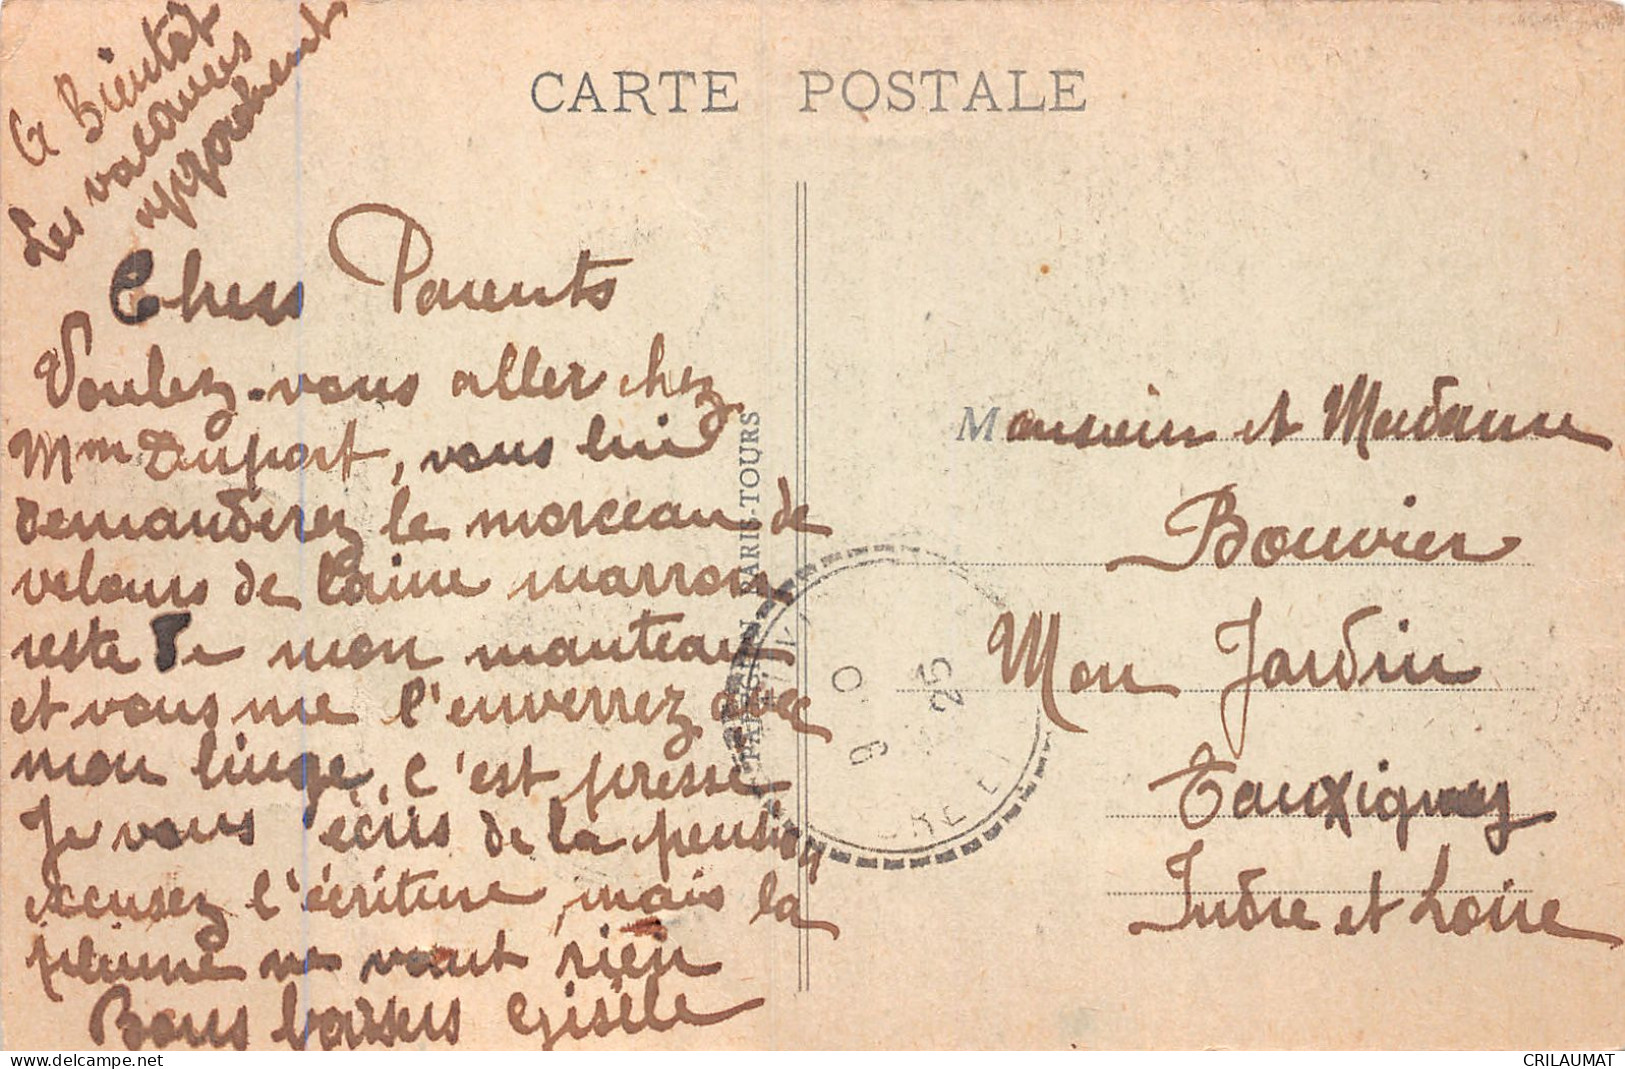 A Bientôt
Les vacances
approchent
CARTE POSTALE
Chers Parents
Voulez-vous aller chez
Mme Duport, vous lui
demanderez le morceau de
velours de laine marron
reste de mon manteau
et vous me l'enverrez avec
mon linge, c'est pressé
Je vous écris de la pension
excusez l'écriture, mais la
plume ne vaut rien
Bons baisers Gisèle
PARIS-TOURS
9 0
25
Monsieur et Madame
Bouvier
Mon Jardin
Tauxigny
Indre et Loire
www.delcampe.net
CRILAUMAT